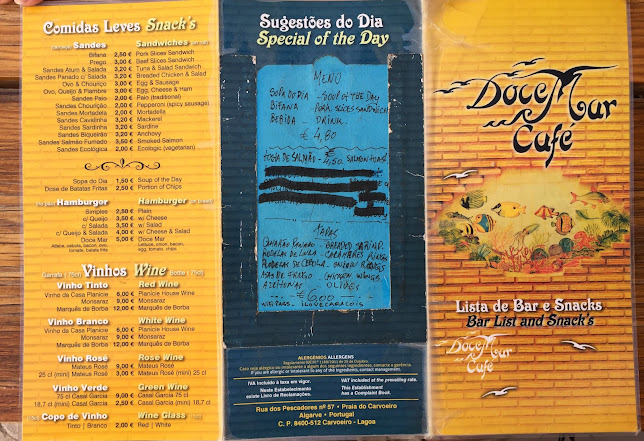 Comidas Leves Snack's
Sandes Sandwiches
Bifana 2,50 € Pork Slices Sandwich
Prego 3,00 € Beef Slices Sandwich
Sandes Atum & Salada 3,20 € Tuna & Salad Sandwich
Sandes Panado c/ Salada 3,20 € Breaded Chicken & Salad
Ovo & Chouriço 3,00 € Egg & Sausage
Ovo, Queijo & Fiambre 3,00 € Egg, Cheese & Ham
Sandes Paio 2,00 € Paio (traditional)
Sandes Chourição 2,00 € Pepperoni (spicy sausage)
Sandes Mortadela 2,00 € Mortadella
Sandes Cavalinha 3,20 € Mackerel
Sandes Sardinha 3,20 € Sardine
Sandes Biqueirão 3,20 € Anchovy
Sandes Salmão Fumado 3,50 € Smoked Salmon
Sandes Ecológica 2,00 € Ecologic (vegetarian)
Sopa do Dia 1,50 € Soup of the Day
Dose de Batatas Fritas 2,50 € Portion of Chips
Hamburger Hamburger
Simples 2,50 € Plain
c/ Queijo 3,50 € w/ Cheese
c/ Salada 3,50 € w/ Salad
c/ Queijo & Salada 4,00 € w/ Cheese & Salad
Doce Mar 5,00 € Doce Mar
Alface, cebola, bacon, ovo, Lettuce, onion, bacon,
tomate, batata frita egg, tomato, chips
Vinhos Wine
Garrafa (75cl) Bottle (75cl)
Vinho Tinto Red Wine
Vinha da Casa Planície 6,00 € Planície House Wine
Monsaraz 9,00 € Monsaraz
Marquês de Borba 12,00 € Marquês de Borba
Vinho Branco White Wine
Vinha da Casa Planície 6,00 € Planície House Wine
Monsaraz 9,00 € Monsaraz
Marquês de Borba 12,00 € Marquês de Borba
Vinho Rosé Rose Wine
Mateus Rosé 9,00 € Mateus Rosé
25 cl (mini) Mateus Rosé 3,00 € Mateus Rosé (mini) 25 cl
Vinho Verde Green Wine
75 cl Casal Garcia 9,00 € Casal Garcia 75 cl
18,7 cl (mini) Casal Garcia 2,50 € Casal Garcia (mini) 18,7 cl
Copo de Vinho Wine Glass
Tinto | Branco 2,00 € Red | White
Sugestões do Dia
Special of the Day
MENU
SOPA DO DIA - SOUP OF THE DAY
BIFANA - PORK SLICES SANDWICH
BEBIDA - DRINK
€ 4,80
TOSTA DE SALMÃO - € 4,50 SALMON TOAST
TAPAS
CAMARÃO PANADO - BREADED
RODELAS DE LULA - CALAMARES RINGS
RODELAS DE CEBOLA - ONION RINGS
ASAS DE FRANGO - CHICKEN WINGS
AZEITONAS - OLIVES
€ 6,00
ALERGÉNIOS ALLERGENS
Caso seja alérgico ou intolerante a algum dos seguintes ingredientes, contacte a gerência.
If you are allergic or intolerant to any of the ingredients, contact management.
IVA Incluído à taxa em vigor. VAT included of the prevailing rate.
Neste Estabelecimento This Establishment
existe Livro de Reclamações. has a Complaint Book.
Rua dos Pescadores nº 57 • Praia do Carvoeiro
Algarve • Portugal
C. P. 8400-512 Carvoeiro - Lagoa
Doce Mar
Café
Lista de Bar e Snacks
Bar List and Snack's
Doce Mar
Café